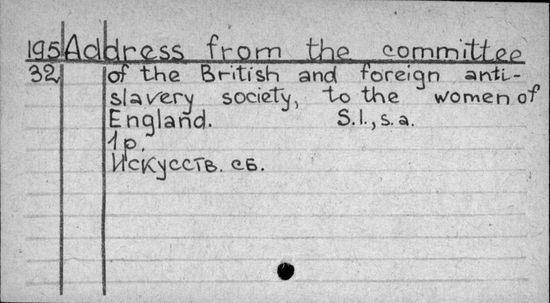 195 Address from the committee
32 of the British and foreign anti-
slavery society, to the women of
England. S.l., s.a.
1 p.
Искусств. сб.